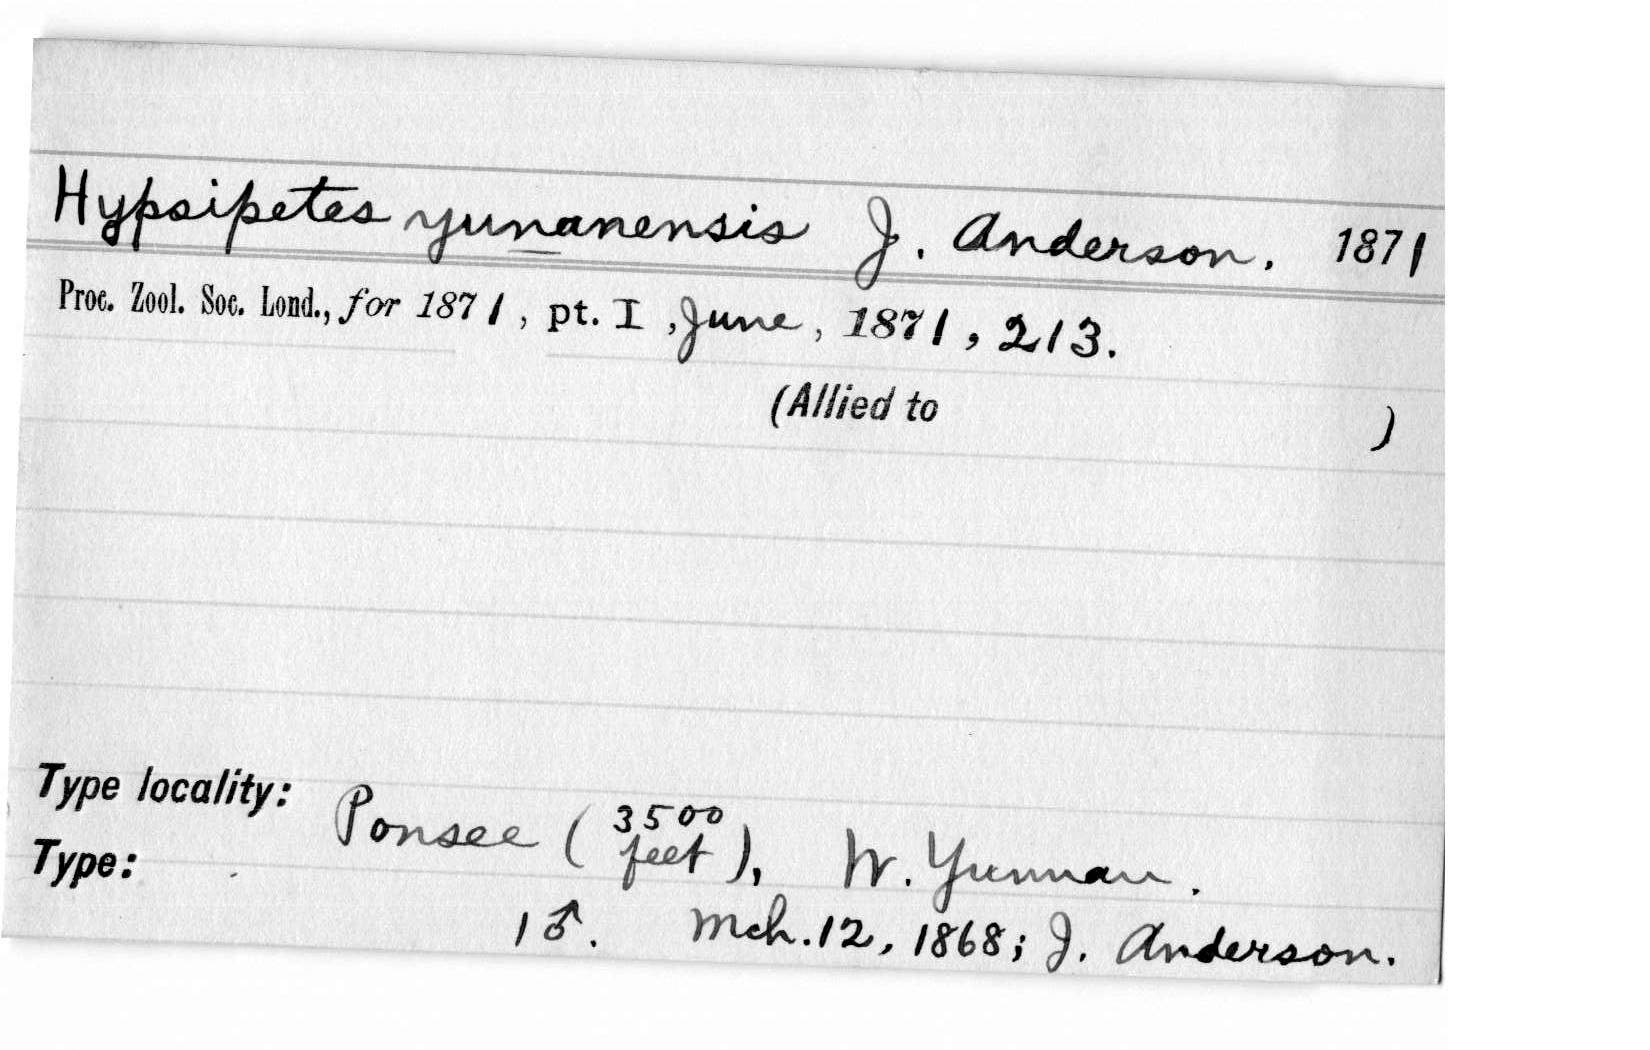 Hypsipetes yunanensis J. Anderson. 1871
Proc. Zool. Soc. Lond., for 1871, pt. I, June, 1871, 213.
(Allied to )
Type locality: Ponsee (3500 feet), W. Yunnan.
Type:
1♂. Mch. 12, 1868; J. Anderson.